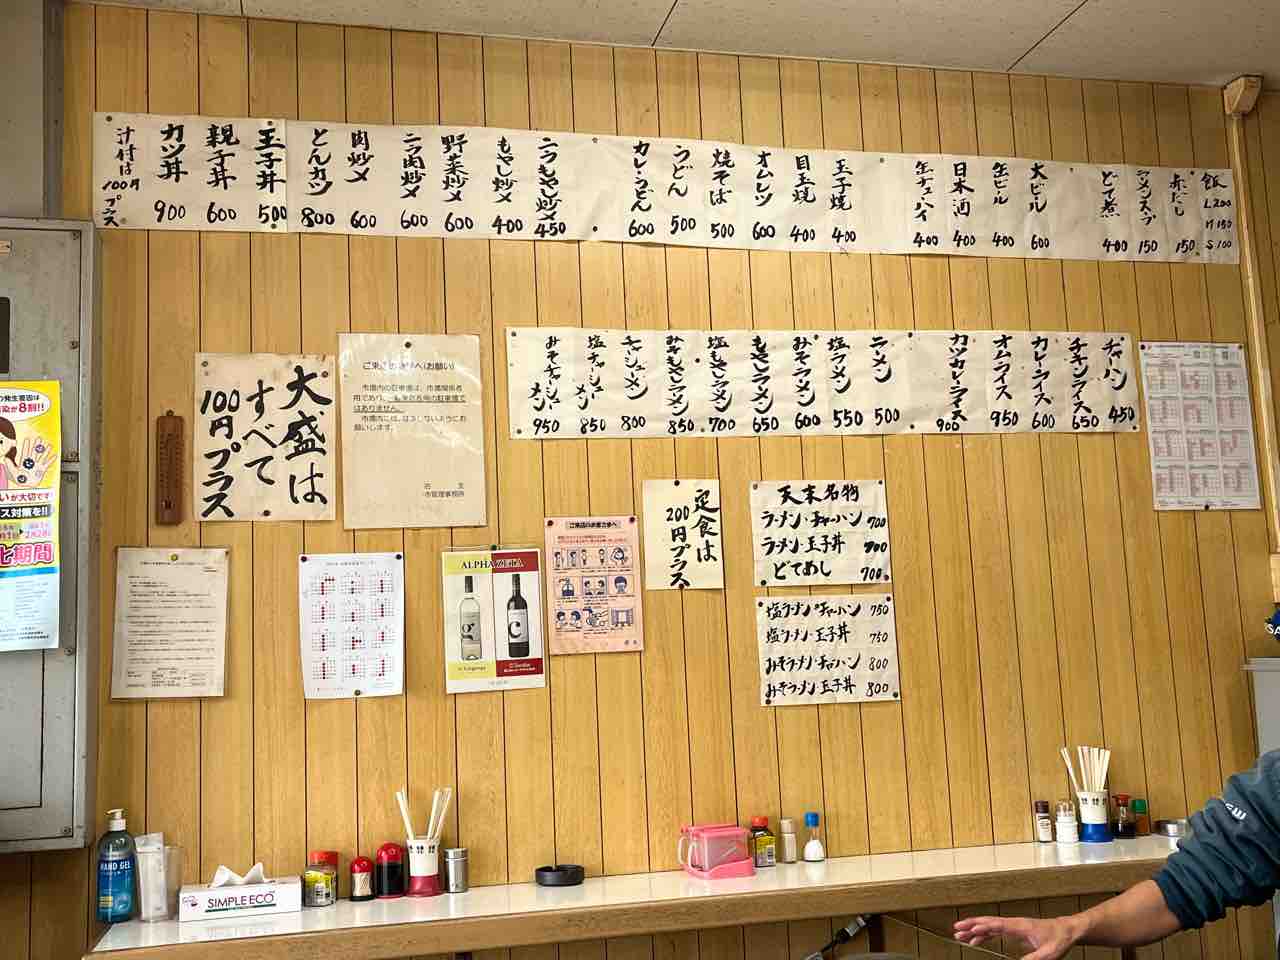 飯 L200 M150 S100
赤だし 150
ラーメンスープ 150
どて煮 400
大ビール 600
缶ビール 400
日本酒 400
缶チューハイ 400
玉子焼 400
目玉焼 400
オムレツ 600
焼そば 500
うどん 500
カレーうどん 600
ニラもやし炒メ 450
もやし炒メ 400
野菜炒メ 600
ニラ肉炒メ 600
肉炒メ 600
とんカツ 800
玉子丼 500
親子丼 600
カツ丼 900
汁付は100円プラス
チャーハン 450
チキンライス 650
カレーライス 600
オムライス 950
カツカレーライス 900
ラーメン 500
塩ラーメン 550
みそラーメン 600
もやしラーメン 650
塩もやしラーメン 700
みそもやしラーメン 850
チャーシューメン 800
塩チャーシューメン 850
みそチャーシューメン 950
大盛は
すべて
100円プラス
ご来店の皆様へ(お願い)
市場内の駐車場は、市場関係者
市管理事務所
定食は
200円プラス
ラーメン・チャーハン 700
ラーメン・玉子丼
どてめし 700
塩ラーメン・チャーハン 750
塩ラーメン・玉子丼 750
みそラーメン・チャーハン 800
みそラーメン・玉子丼 800
ご来店のお客さまへ
ALPHA ZETA
g
C
の発生要因は
染が8割!!
いが大切です
ス対策を!!
2月28日
七期間
HAND GEL
SIMPLE ECO